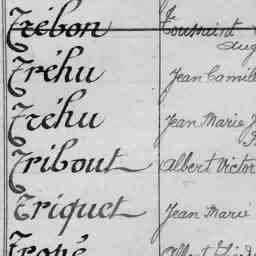 Trébon Toussaint Aug
Tréhu Jean Camill
Tréhu Jean Marie J
Tribout Albert Victor
Triquet Jean Marie
Tropé Albert